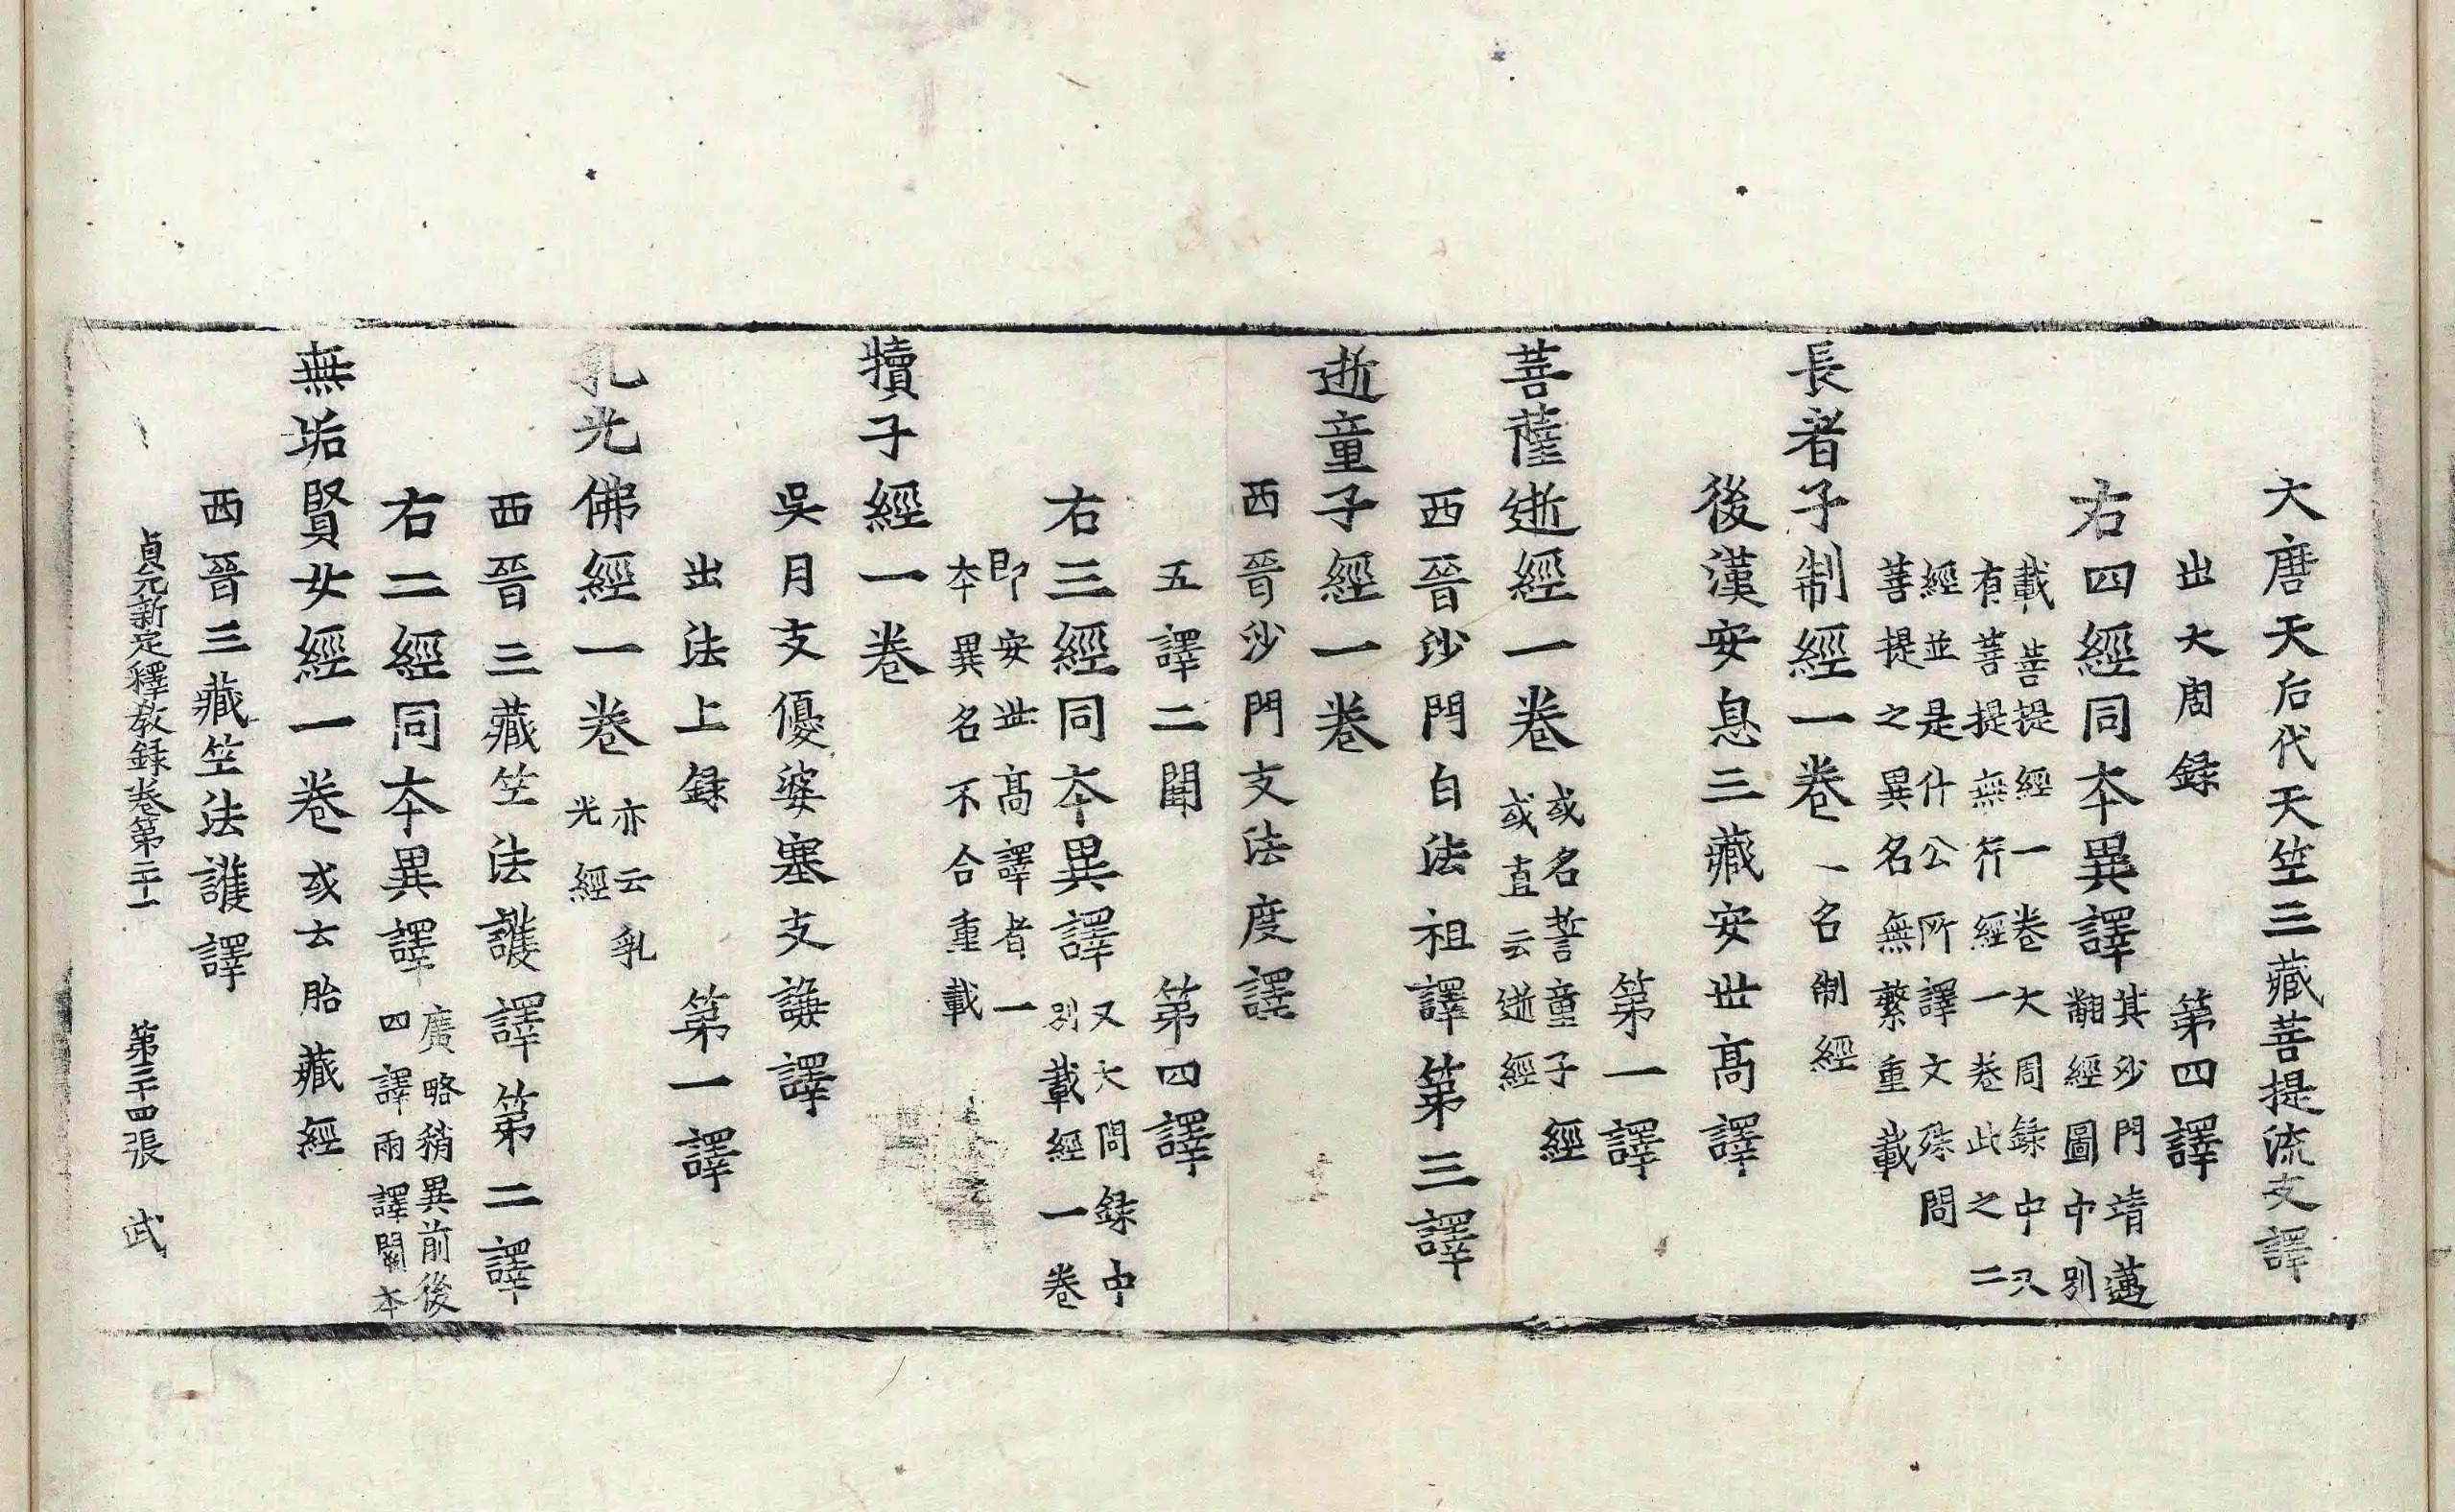 大唐天后代天竺三藏菩提流支譯
出大周錄　第四譯
右四經同本異譯其沙門靖邁
翻經圖中別
載菩提經一卷大周錄中又
有菩提無行經一卷此之二
經並是什公所譯文殊問
菩提之異名無繁重載
長者子制經一卷一名制經
後漢安息三藏安世高譯
第一譯
菩薩逝經一卷或名誓童子經
或直云逝經
西晉沙門白法祖譯第三譯
逝童子經一卷
西晉沙門支法度譯
五譯二闕　第四譯
右三經同本異譯又大周錄中
別載經一卷
即安世高譯者一
本異名不合重載
犢子經一卷
吳月支優婆塞支謙譯
出法上錄　第一譯
乳光佛經一卷亦云乳
光經
西晉三藏竺法護譯第二譯
右二經同本異譯廣略稍異前後
四譯兩譯闕本
無垢賢女經一卷或云胎藏經
西晉三藏竺法護譯
貞元新定釋教錄卷第二十一　第三十四張　武